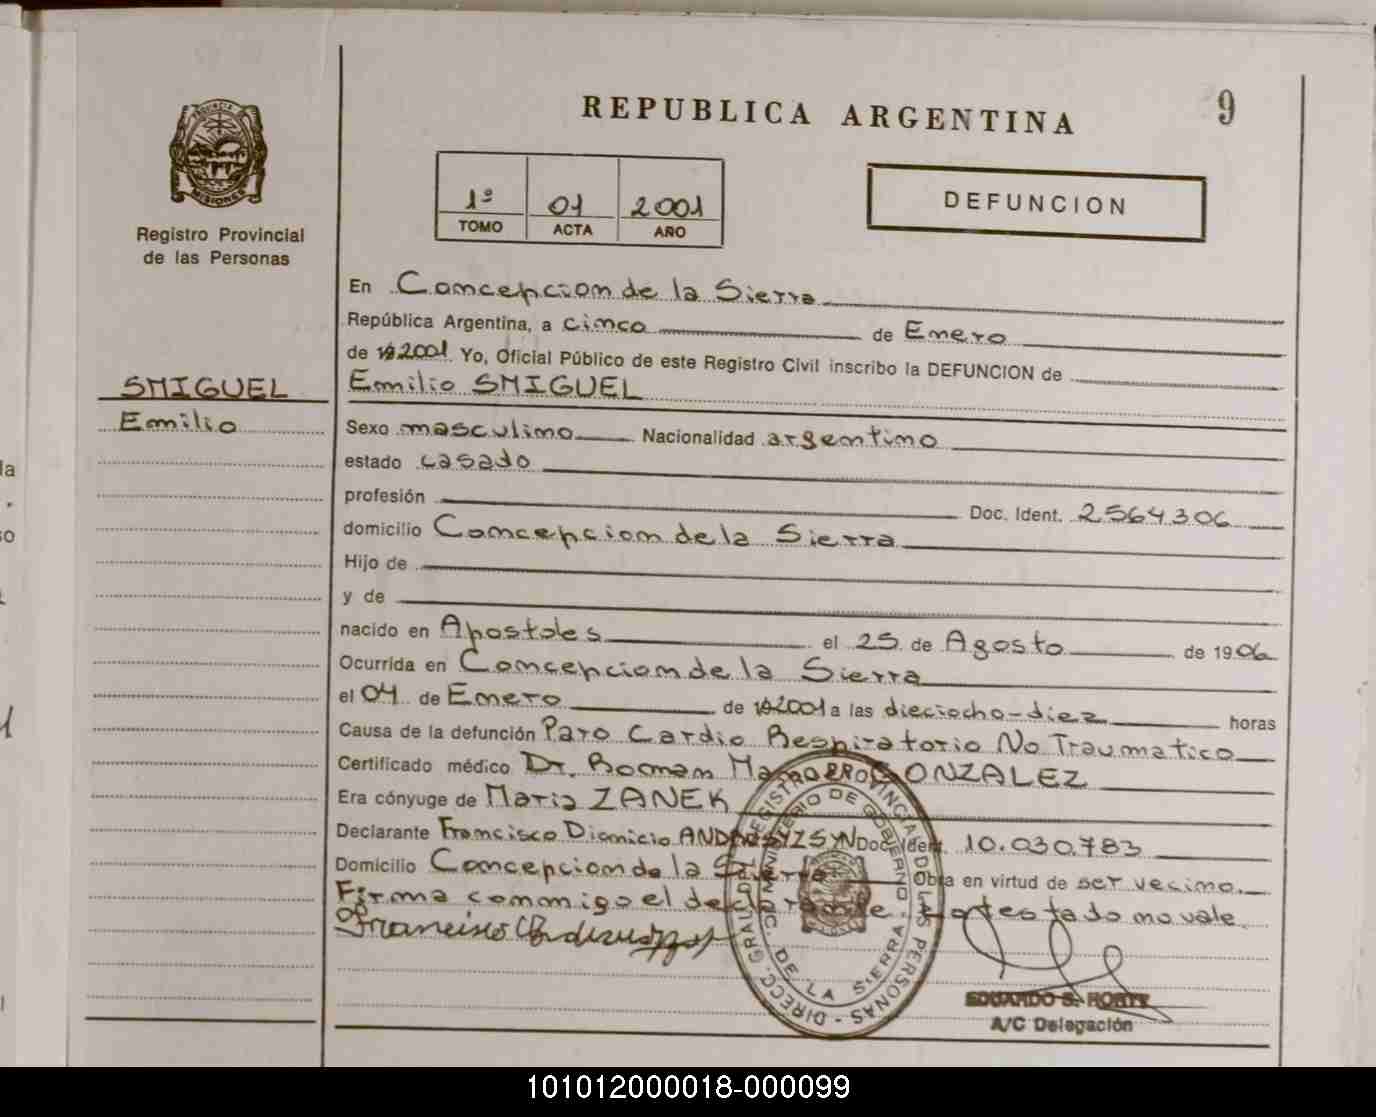 REPUBLICA ARGENTINA
9
PROVINCIA
MISIONES
Registro Provincial
de las Personas
1º 01 2001
TOMO ACTA AÑO
DEFUNCION
En Concepcion de la Sierra
República Argentina, a cinco de Enero
de 19 2001 Yo, Oficial Público de este Registro Civil inscribo la DEFUNCION de
SMIGUEL
Emilio
Emilio SMIGUEL
Sexo masculino Nacionalidad argentino
estado casado
profesión Doc. Ident. 2564306
domicilio Concepcion de la Sierra
Hijo de
y de
nacido en Apostoles el 25 de Agosto de 1906
Ocurrida en Concepcion de la Sierra
el 04 de Enero de 19 2001 a las dieciocho-diez horas
Causa de la defunción Paro Cardio Respiratorio No Traumatico
Certificado médico Dr. Roman GONZALEZ
Era cónyuge de Maria ZANEK
Declarante Francisco Dionicio Doc. Ident. 10.030.783
Domicilio Concepcion de la Sierra Obra en virtud de ser vecino.
Firma conmigo el declarante Lo testado no vale.
Francisco
DIRECC. GRAL. DEL REGISTRO PROVINCIAL DE LAS PERSONAS
MINISTERIO DE GOBIERNO
DE LA SIERRA
EDUARDO S.
A/C Delegación
101012000018-000099